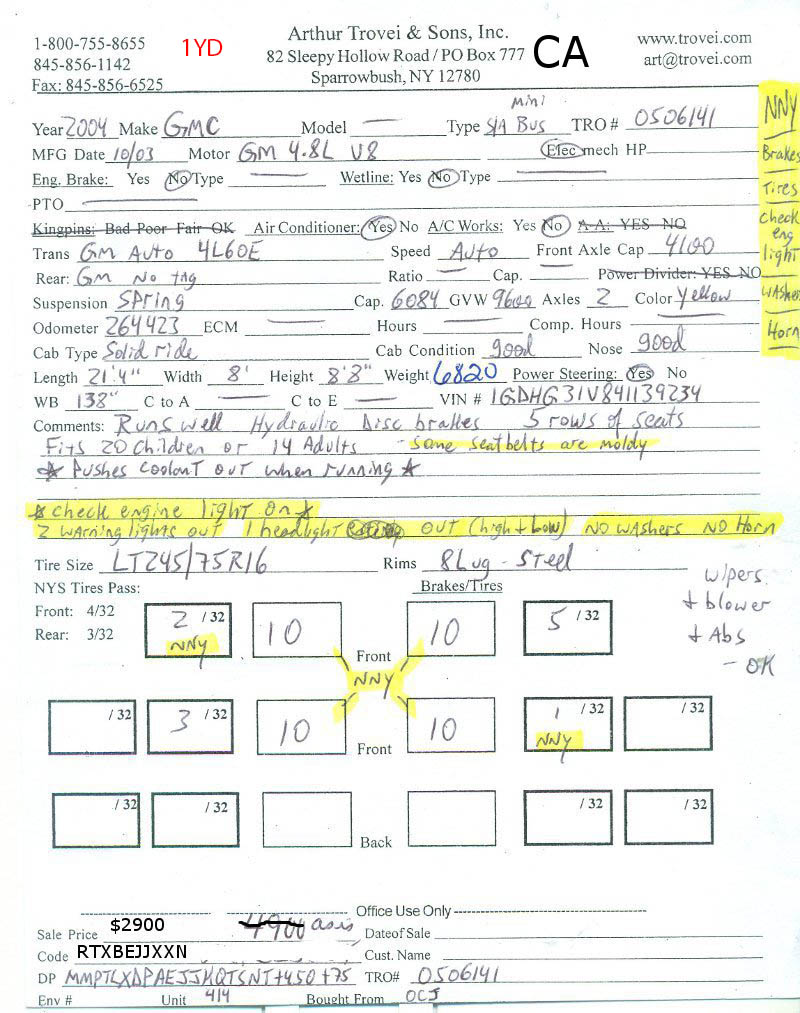 Arthur Trovei & Sons, Inc.
1-800-755-8655 1YD 82 Sleepy Hollow Road / PO Box 777 CA www.trovei.com
845-856-1142 Sparrowbush, NY 12780 art@trovei.com
Fax: 845-856-6525
NNY
Brakes
Tires
check
eng
light
washer
Horn
mini
Year 2004 Make GMC Model — Type S/A Bus TRO # 0506141
MFG Date 10/03 Motor GM 4.8L V8 Elec mech HP
Eng. Brake: Yes No Type — Wetline: Yes No Type —
PTO —
Kingpins: Bad Poor Fair OK Air Conditioner: Yes No A/C Works: Yes No A-A: YES NO
Trans GM Auto 4L60E Speed Auto Front Axle Cap 4100
Rear: GM No tag Ratio — Cap. — Power Divider: YES NO
Suspension Spring Cap. 6084 GVW 9600 Axles 2 Color Yellow
Odometer 264423 ECM — Hours — Comp. Hours —
Cab Type Solid ride Cab Condition good Nose good
Length 21'4" Width 8' Height 8'8" Weight 6820 Power Steering: Yes No
WB 138" C to A — C to E — VIN # 1GDHG31V841139234
Comments: Runs well Hydraulic Disc brakes 5 rows of seats
Fits 20 children or 14 Adults - some seatbelts are moldy
* Pushes coolant out when running *
* check engine light on *
2 warning lights out 1 headlight OUT (high + low) NO washers NO Horn
Tire Size LT245/75R16 Rims 8 Lug - Steel
NYS Tires Pass: Brakes/Tires
wipers
+ blower
+ Abs
- OK
Front: 4/32 2 /32 10 10 5 /32
Rear: 3/32 NNY Front
NNY
/32 3 /32 10 10 1 /32 /32
Front NNY
/32 /32 /32 /32
Back
Office Use Only
Sale Price $2900 4900 as is Date of Sale
Code RTXBEJJXXN Cust. Name
DP MMPTLXDPAEJJHQTSNT+450+75 TRO# 0506141
Env # Unit 414 Bought From OCJ